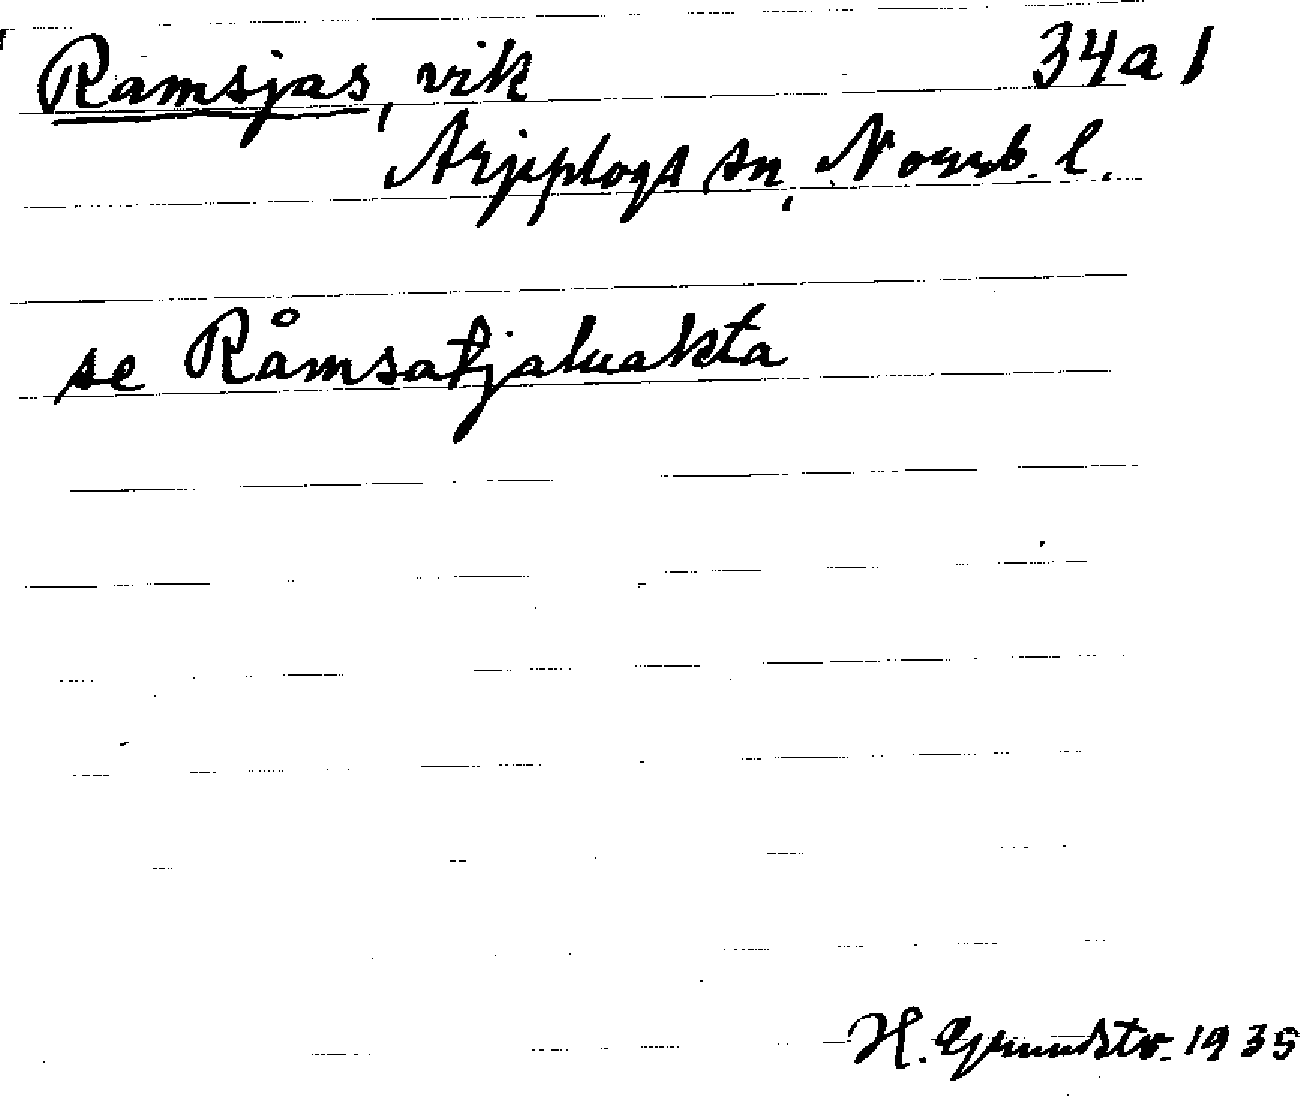 Ramsjas, vik 34a1
Arjeplogs sn, Norrb. l.
se Råmsatjaluakta
H. Grundstr. 1935